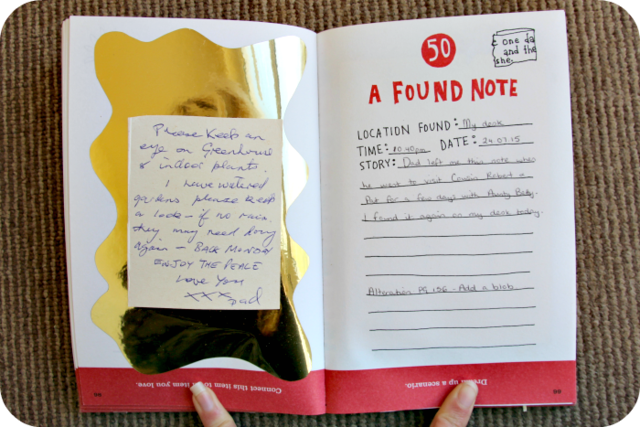 Please keep an
eye on Greenhouse
& indoor plants.
I have watered
gardens please keep
a look – if no rain
they may need doing
again – BACK MONDAY
ENJOY THE PEACE
Love You
xxx Dad
Connect this item to item you love.
50
one da
and the
she
A FOUND NOTE
LOCATION FOUND: My desk
TIME: 10.40pm DATE: 24.07.15
STORY: Dad left me this note when
he went to visit Cousin Robert &
Pat for a few days with Aunty Betty.
I found it again on my desk today.
Alteration PG 156 - Add a blob
up a scenario.